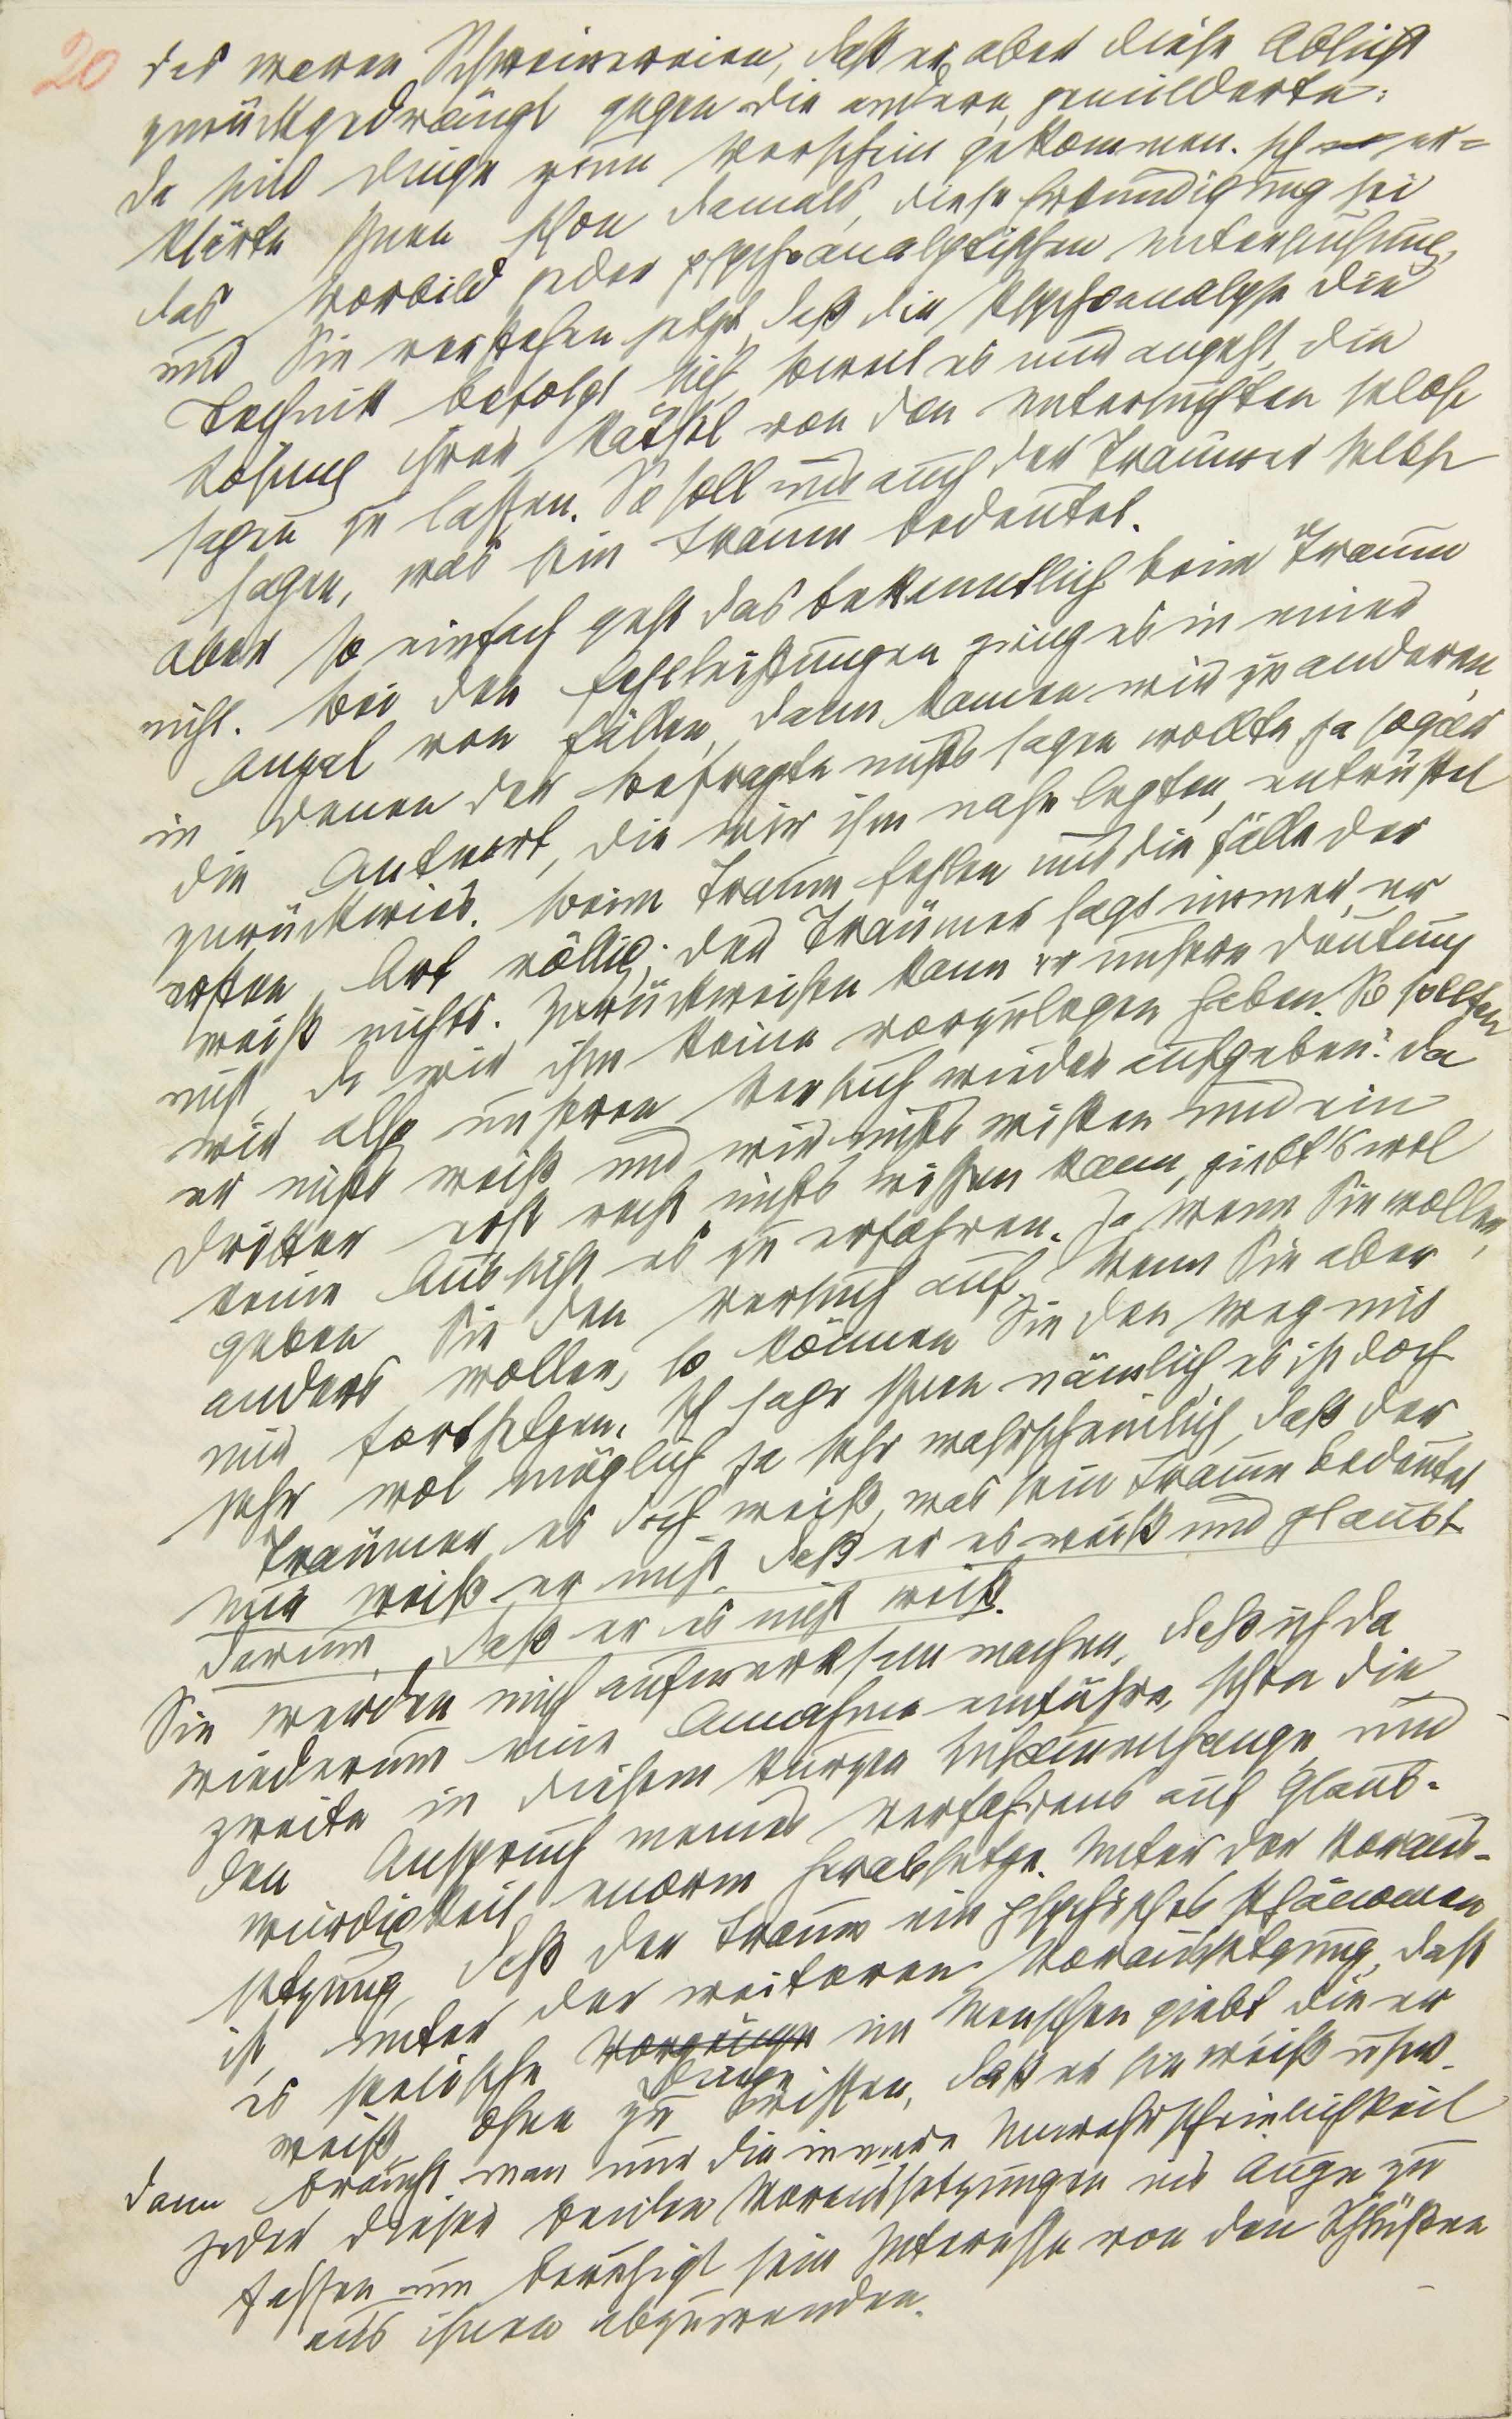 20
das waren Schweinereien, daß er aber diese Absicht
zurückgedrängt gegen die andere, gemilderte:
da sind Dinge zum Vorschein gekommen. Ich er=
klärte Ihnen schon damals, diese Erkundigung sei
das Vorbild jeder psychoanalytischen Untersuchung,
und Sie verstehen jetzt, daß die Psychoanalyse die
Technik befolgt sich, soweil es nur angeht, die
Lösung ihrer Rätsel von den Untersuchten selbst
sagen zu lassen. So soll uns auch der Träumer selbst
sagen, was sein Traum bedeutet.
Aber so einfach geht das bekanntlich beim Traum
nicht. Bei den Fehlleistungen ging es in einer
Anzal von Fällen, dann kamen wir zu anderen,
in denen der Befragte nichts sagen wollte, ja sogar
die Antwort, die wir ihm nahe legten, entrüstet
zurückwies. Beim Traum fehlen uns die Fälle der
ersten Art völlig; der Träumer sagt immer, er
weiß nichts. Zurückweisen kann er unsere Deutung
nicht, da wir ihm keine vorzulegen haben. So sollten
wir also unseren Versuch wieder aufgeben? Da
er nichts weiß und wir nichts wissen und ein
dritter erst recht nichts wissen kann, giebt's wol
keine Aussicht es zu erfahren. Ja, wenn Sie wollen,
geben Sie den Versuch auf. Wenn Sie aber
anders wollen, so können Sie den Weg mit
mir fortsetzen. Ich sage Ihnen nämlich, es ist doch
sehr wol möglich, ja sehr wahrscheinlich, daß der
Träumer es doch weiß, was sein Traum bedeutet,
nur weiß er nicht, daß er es weiß und glaubt
darum, daß er es nicht weiß.
Sie werden mich aufmerksam machen, daß ich da
wiederum eine Annahme einführe, schon die
zweite in diesem kurzen Zusammenhange, und
den Anspruch meines Verfahrens auf Glaub-
würdigkeit enorm herabsetze. Unter der Voraus-
setzung, daß der Traum ein psychisches Phänomen
ist, unter der weiteren Voraussetzung, daß
es seelische Vorgänge im Menschen giebt die er
Dinge
weiß, ohne zu wissen, daß er sie weiß usw.
Dann braucht man nur die innere Unwahrscheinlichkeit
jeder dieser beiden Voraussetzungen ins Auge zu
fassen um beruhigt sein Interesse von den Schlüßen
aus ihnen abzuwenden.